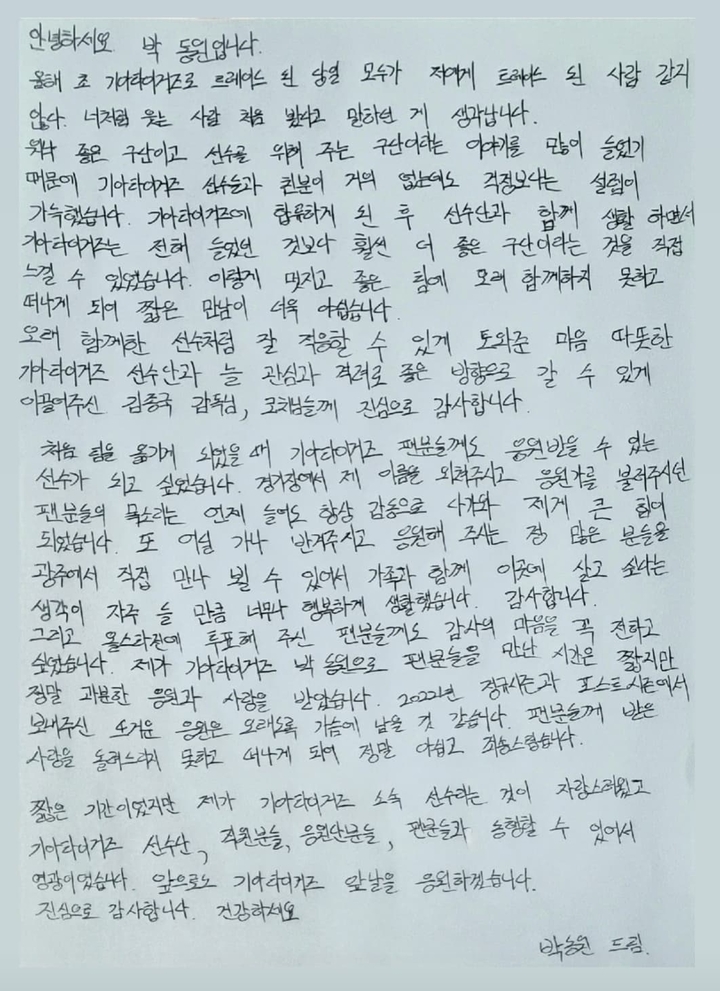 안녕하세요. 박 동원입니다.
올해 초 기아타이거즈로 트레이드 된 당일 모수가 저에게 트레이드 된 사람 같지
않다. 너처럼 웃는 사람 처음 봤다고 말하던 게 생각납니다.
워낙 좋은 구단이고 선수를 위해 주는 구단이라는 이야기를 많이 들었기
때문에 기아타이거즈 선수들과 친분이 거의 없는데도 걱정보다는 설렘이
가득했습니다. 기아타이거즈에 합류하게 된 후 선수단과 함께 생활 하면서
기아타이거즈는 전해 들었던 것보다 훨씬 더 좋은 구단이라는 것을 직접
느낄 수 있었습니다. 이렇게 멋지고 좋은 팀에 오래 함께하지 못하고
떠나게 되어 짧은 만남이 더욱 아쉽습니다.
오래 함께한 선수처럼 잘 적응할 수 있게 도와준 마음 따뜻한
기아타이거즈 선수단과 늘 관심과 격려로 좋은 방향으로 갈 수 있게
이끌어주신 김종국 감독님, 코치님들께 진심으로 감사합니다.
처음 팀을 옮기게 되었을 때 기아타이거즈 팬분들께도 응원받을 수 있는
선수가 되고 싶었습니다. 경기장에서 제 이름을 외쳐주시고 응원가를 불러주시던
팬분들의 목소리는 언제 들어도 항상 감동으로 다가와 제게 큰 힘이
되었습니다. 또 어딜 가나 반겨주시고 응원해 주시는 정 많은 분들을
광주에서 직접 만나 뵐 수 있어서 가족과 함께 이곳에 살고 싶다는
생각이 자주 들 만큼 너무나 행복하게 생활했습니다. 감사합니다.
그리고 올스타전에 투표해 주신 팬분들께도 감사의 마음을 꼭 전하고
싶었습니다. 제가 기아타이거즈 박동원으로 팬분들을 만난 시간은 짧지만
정말 과분한 응원과 사랑을 받았습니다. 2022년 정규시즌과 포스트시즌에서
보내주신 뜨거운 응원은 오래도록 가슴에 남을 것 같습니다. 팬분들께 받은
사랑을 돌려드리지 못하고 떠나게 되어 정말 아쉽고 죄송스럽습니다.
짧은 기간이었지만 제가 기아타이거즈 소속 선수라는 것이 자랑스러웠고
기아타이거즈 선수단, 직원분들, 응원단분들, 팬분들과 동행할 수 있어서
영광이었습니다. 앞으로도 기아타이거즈 앞날을 응원하겠습니다.
진심으로 감사합니다. 건강하세요
박동원 드림.